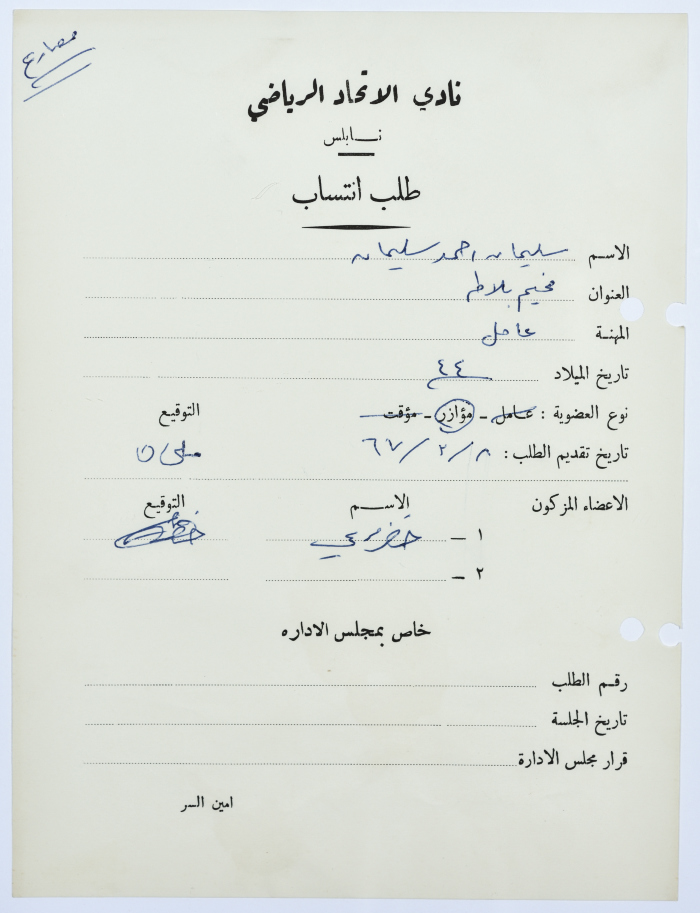 مصارع
نادي الاتحاد الرياضي
نابلس
طلب انتساب
الاسم سليمان احمد سليمان
العنوان مخيم بلاطه
المهنة عامل
تاريخ الميلاد ٤٤
نوع العضوية : عامل - مؤازر - مؤقت التوقيع
تاريخ تقديم الطلب : ٨ / ٢ / ٦٧
الاعضاء المزكون الاسم التوقيع
١ - خضر مرعي
٢ -
خاص بمجلس الاداره
رقم الطلب
تاريخ الجلسة
قرار مجلس الادارة
امين السر